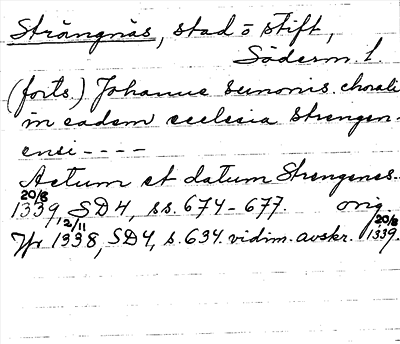 Strängnäs, stad o stift,
Söderm. l.
(forts.) Johanne sunonis. chorali
in eadem ecclesia Strengen-
ensi - - - -
Actum et datum Strengenes.
20/8 1339, SD4, ss. 674-677. orig.
Jfr 12/11 1338, SD4, s. 634. vidim. avskr. 20/8 1339.